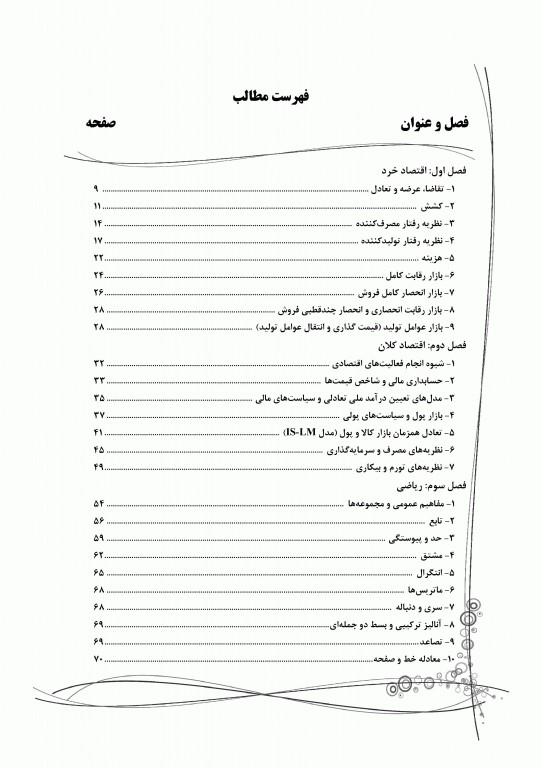 فهرست مطالب
فصل و عنوان صفحه
فصل اول: اقتصاد خرد
۱- تقاضا، عرضه و تعادل ........ ۹
۲- کشش ........ ۱۱
۳- نظریه رفتار مصرف‌کننده ........ ۱۴
۴- نظریه رفتار تولیدکننده ........ ۱۷
۵- هزینه ........ ۲۲
۶- بازار رقابت کامل ........ ۲۴
۷- بازار انحصار کامل فروش ........ ۲۶
۸- بازار رقابت انحصاری و انحصار چندقطبی فروش ........ ۲۸
۹- بازار عوامل تولید (قیمت گذاری و انتقال عوامل تولید) ........ ۲۸
فصل دوم: اقتصاد کلان
۱- شیوه انجام فعالیت‌های اقتصادی ........ ۳۲
۲- حسابداری مالی و شاخص قیمت‌ها ........ ۳۳
۳- مدل‌های تعیین درآمد ملی تعادلی و سیاست‌های مالی ........ ۳۵
۴- بازار پول و سیاست‌های پولی ........ ۳۷
۵- تعادل همزمان بازار کالا و پول (مدل IS-LM) ........ ۴۱
۶- نظریه‌های مصرف و سرمایه‌گذاری ........ ۴۵
۷- نظریه‌های تورم و بیکاری ........ ۴۹
فصل سوم: ریاضی
۱- مفاهیم عمومی و مجموعه‌ها ........ ۵۴
۲- تابع ........ ۵۶
۳- حد و پیوستگی ........ ۵۹
۴- مشتق ........ ۶۲
۵- انتگرال ........ ۶۵
۶- ماتریس‌ها ........ ۶۸
۷- سری و دنباله ........ ۶۸
۸- آنالیز ترکیبی و بسط دو جمله‌ای ........ ۶۹
۹- تصاعد ........ ۶۹
۱۰- معادله خط و صفحه ........ ۷۰